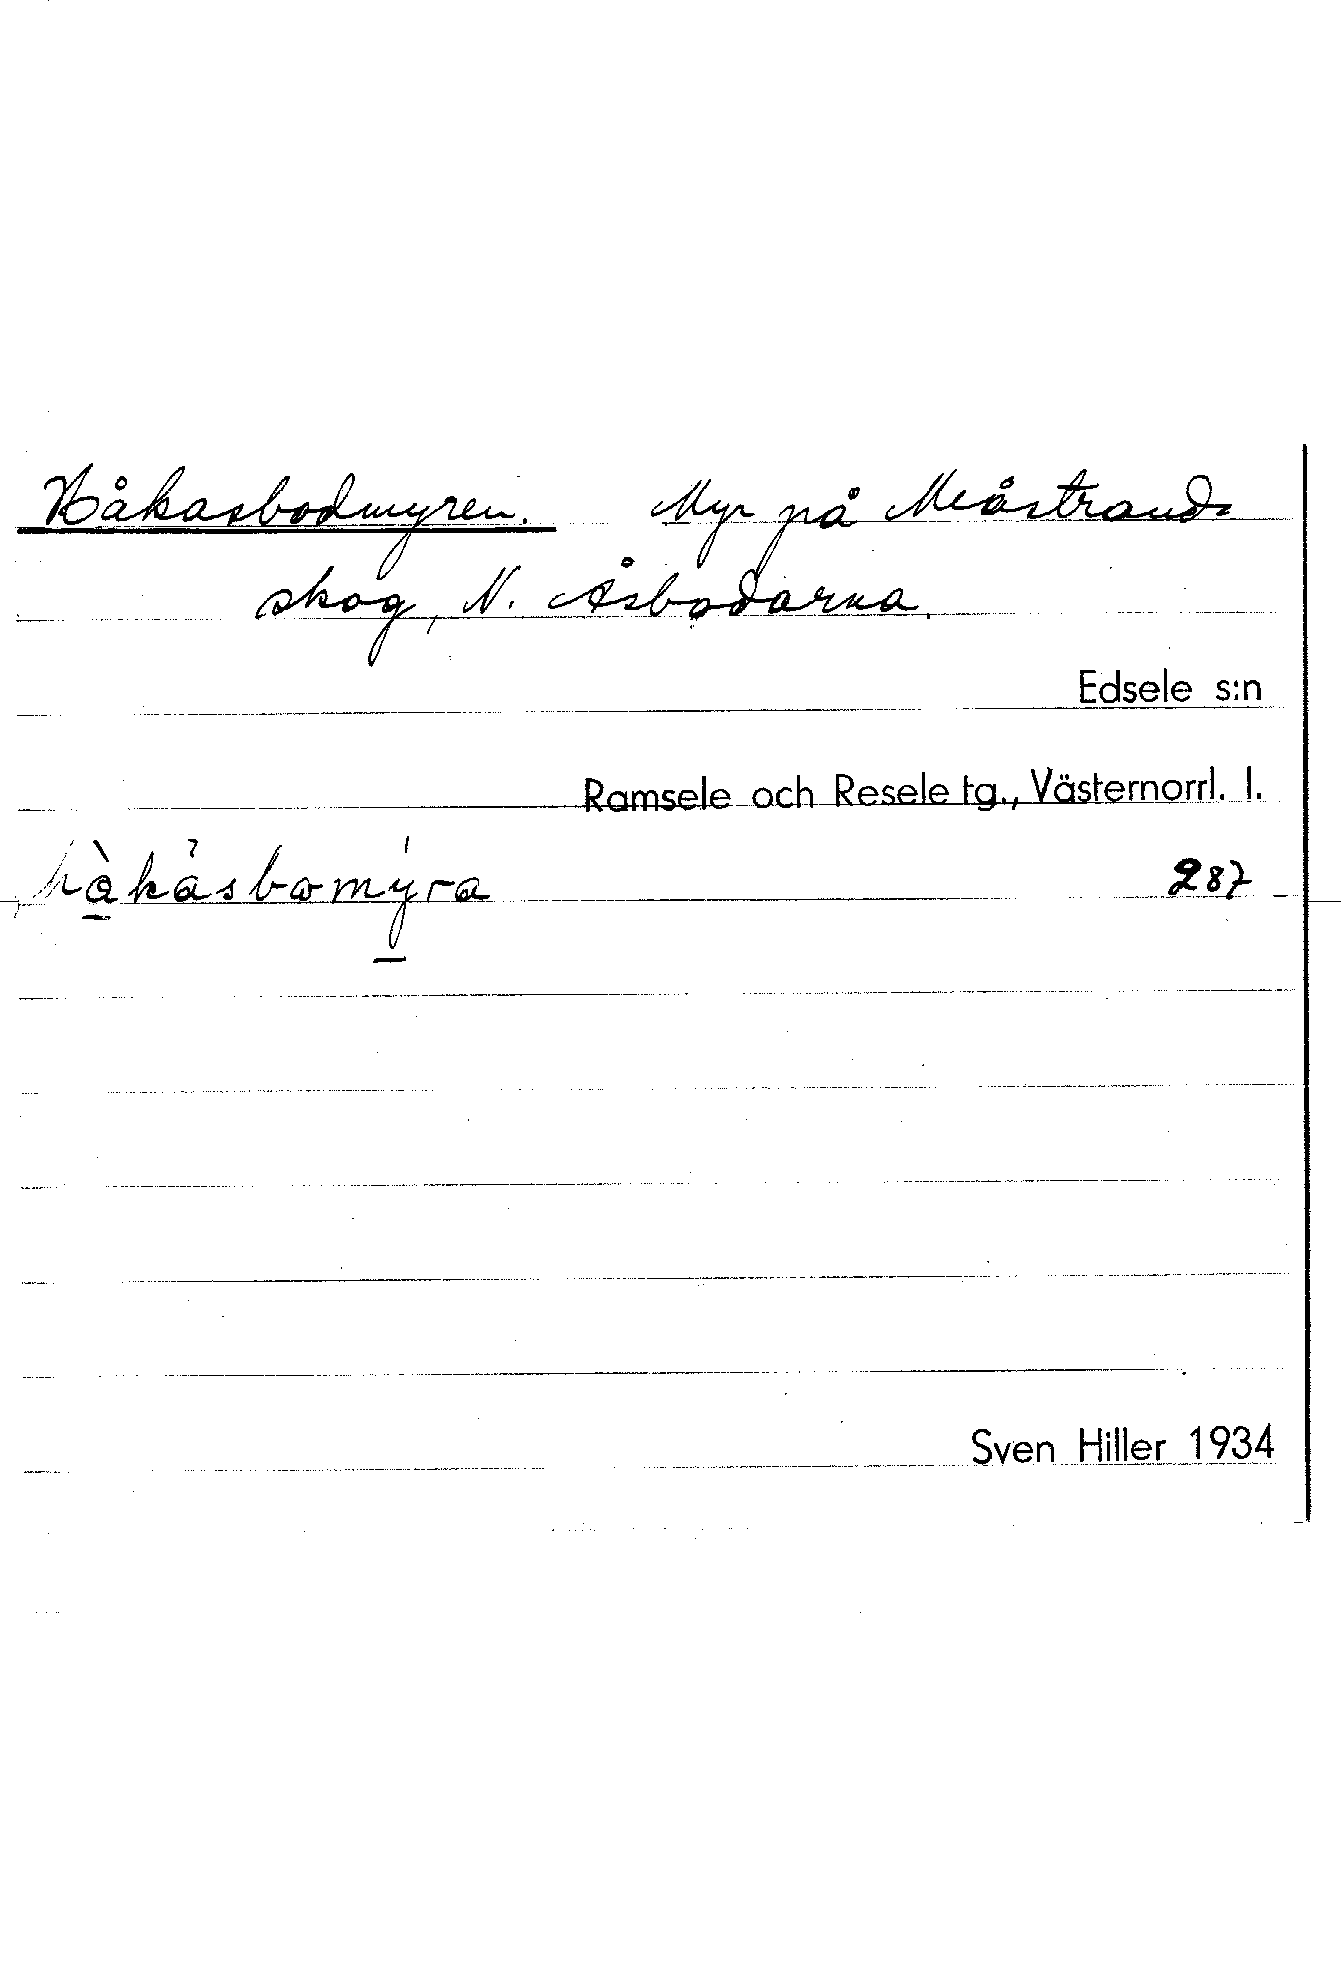 Håkasbodmyren. Myr på Meåstrands
skog, N. Åsbodarna.
Edsele s:n
Ramsele och Resele tg., Västernorrl. l.
håkåsbomyra 287
Sven Hiller 1934